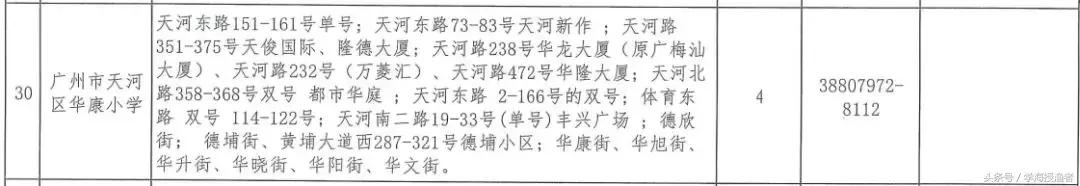 30
广州市天河
区华康小学
天河东路151-161号单号；天河东路73-83号天河新作 ；天河路
351-375号天俊国际、隆德大厦；天河路238号华龙大厦（原广梅汕
大厦）、天河路232号（万菱汇）、天河路472号华隆大厦；天河北
路358-368号双号 都市华庭 ；天河东路 2-166号的双号；体育东
路 双号 114-122号；天河南二路19-33号(单号)丰兴广场 ；德欣
街； 德埔街、黄埔大道西287-321号德埔小区；华康街、华旭街、
华升街、华晓街、华阳街、华文街。
4
38807972-
8112
头条号／学海授渔者